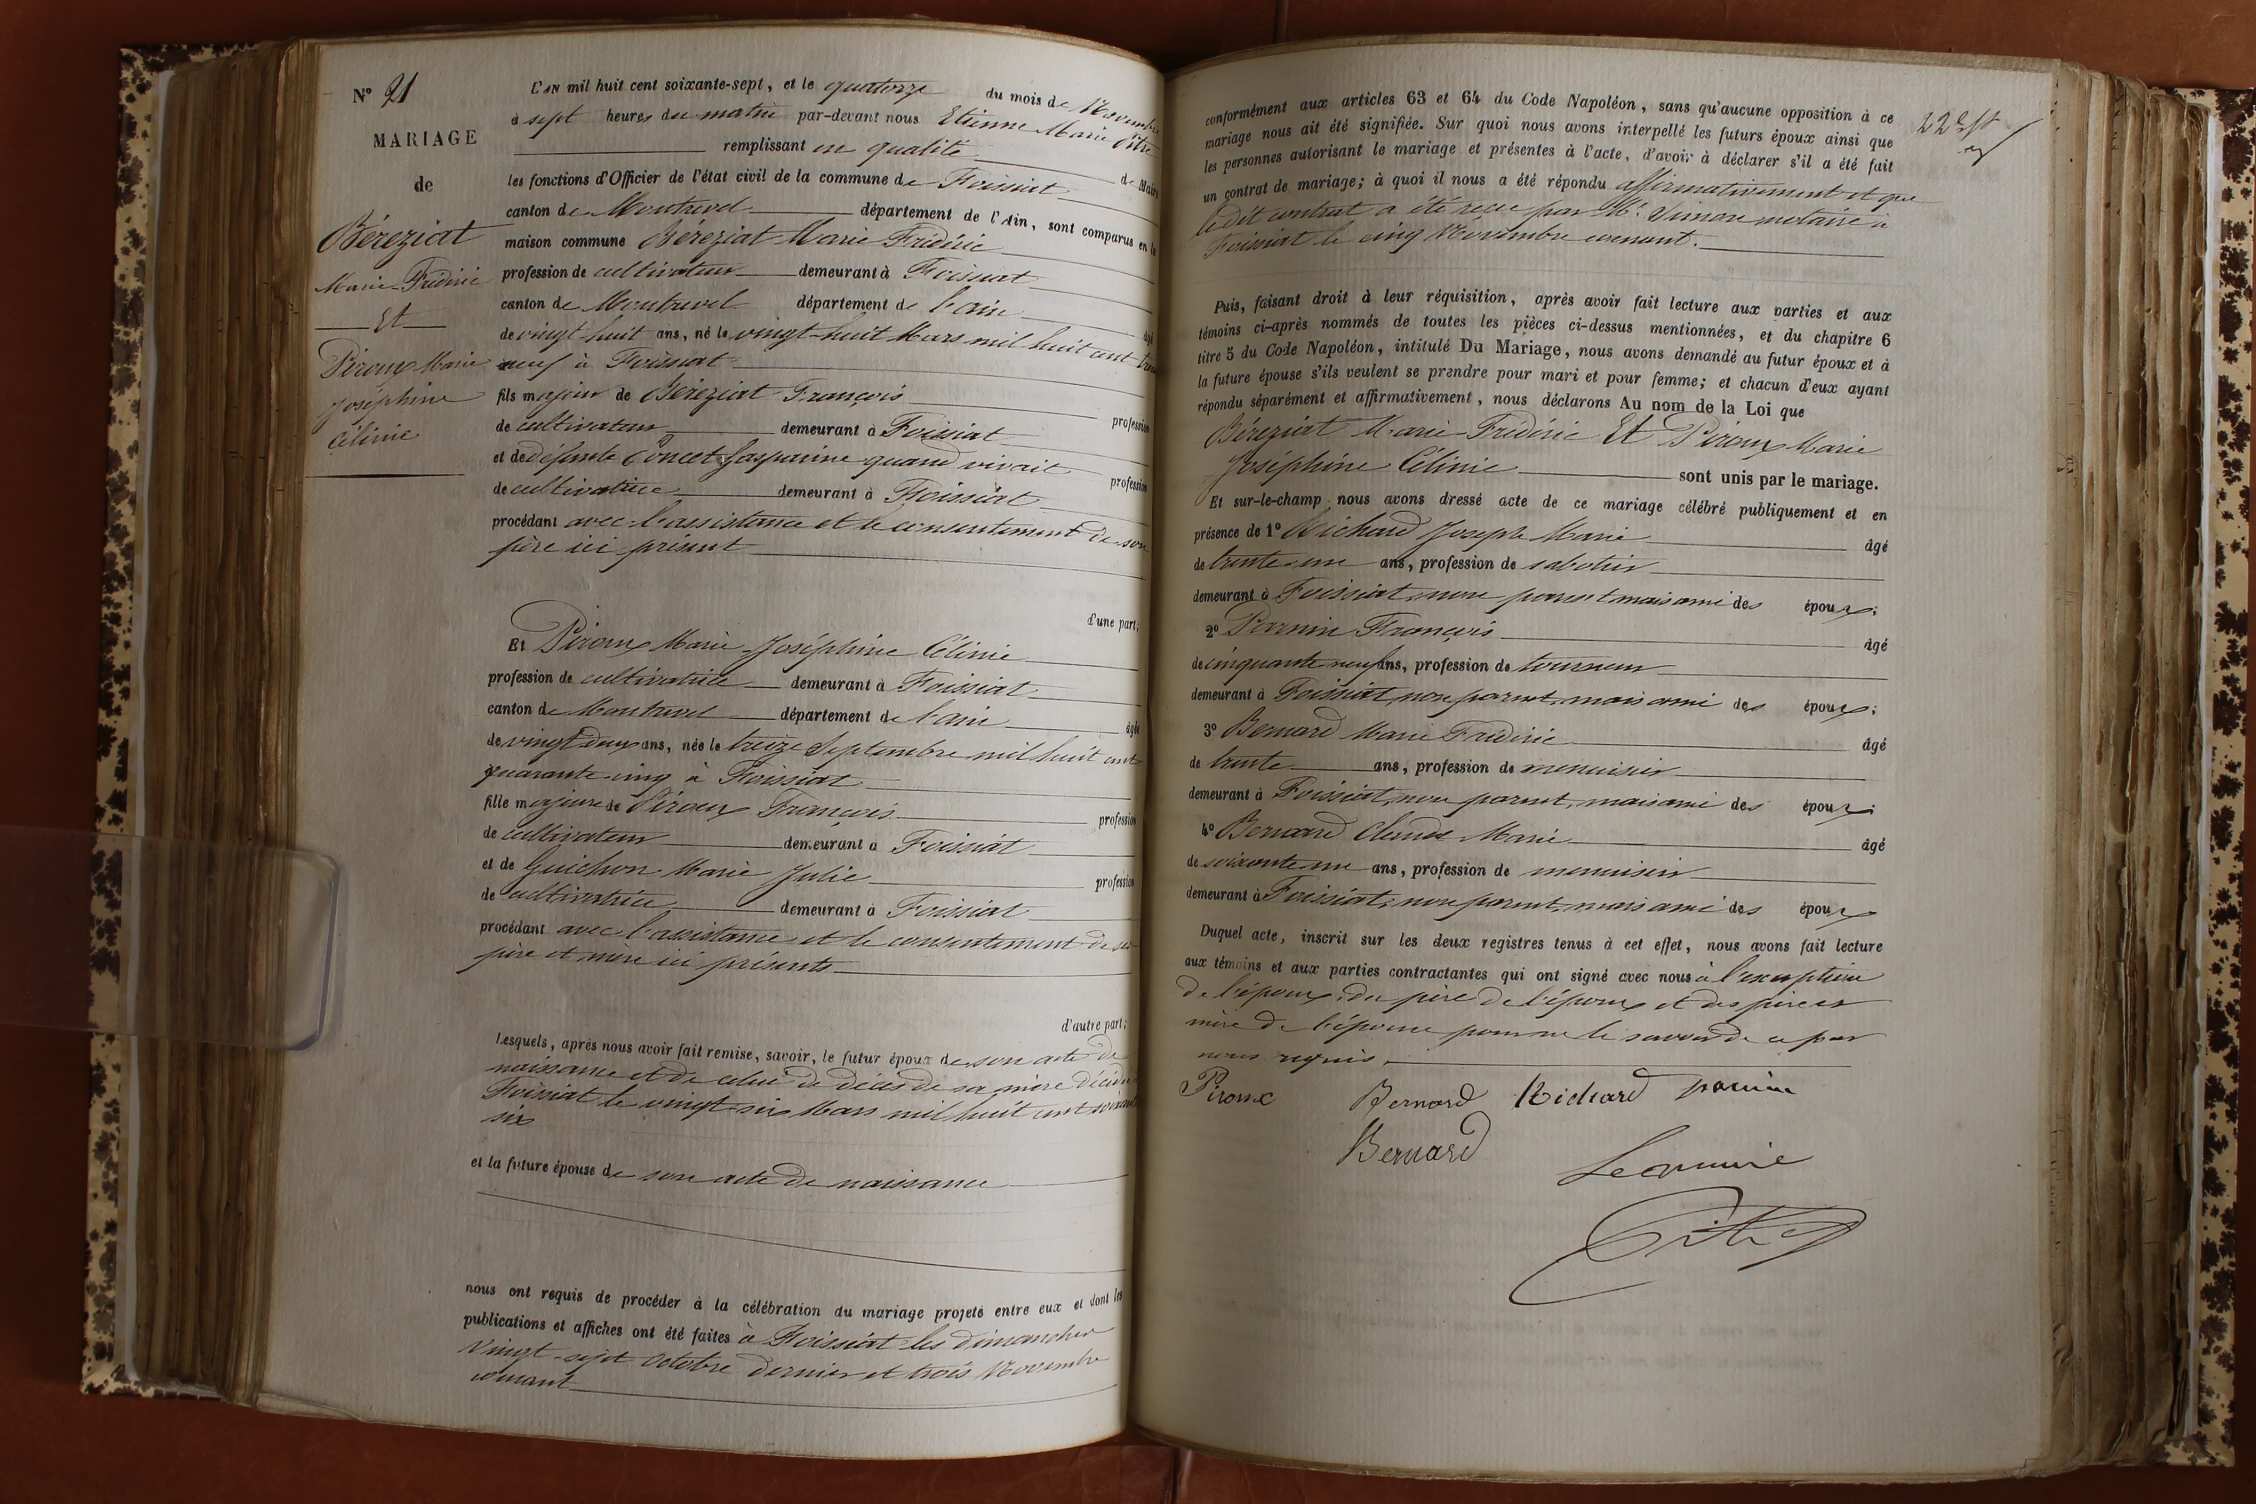 N° 21
MARIAGE
de
Béreziat
Marie-Frédéric
Et
Piroux Marie
Joséphine
Célinie
L'AN mil huit cent soixante-sept, et le quatorze du mois de Novembre
à sept heures du matin par-devant nous Etienne Marie Pitre
remplissant en qualité de Maire
les fonctions d'Officier de l'état civil de la commune de Foissiat
canton de Montrevel département de l'Ain, sont comparus en la
maison commune Béreziat Marie Frédéric
profession de cultivateur demeurant à Foissiat
canton de Montrevel département de l'ain âgé
de vingt-huit ans, né le vingt-huit Mars mil huit cent trente
neuf à Foissiat
fils majeur de Béréziat François profession
de cultivateur demeurant à Foissiat
et de défunte Poncet Gasparine quand vivait profession
de cultivatrice demeurant à Foissiat
procédant avec l'assistance et le consentement de son
père ici présent
d'une part;
Et Piroux Marie-Joséphine Célinie
profession de cultivatrice demeurant à Foissiat
canton de Montrevel département de l'ain âgée
de vingt deux ans, née le treize Septembre mil huit cent
quarante-cinq à Foissiat
fille majeure de Piroux François profession
de cultivateur demeurant à Foissiat
et de Guichon Marie Julie profession
de cultivatrice demeurant à Foissiat
procédant avec l'assistance et le consentement de ses
père et mère ici présents
d'autre part;
Lesquels, après nous avoir fait remise, savoir, le futur époux de son acte de
naissance et de celui de décès de sa mère décédée
Foissiat le vingt-six Mars mil huit cent soixante
six
et la future épouse de son acte de naissance
nous ont requis de procéder à la célébration du mariage projeté entre eux et dont les
publications et affiches ont été faites à Foissiat les dimanches
Vingt-sept Octobre dernier et trois Novembre
courant
conformément aux articles 63 et 64 du Code Napoléon, sans qu'aucune opposition à ce
mariage nous ait été signifiée. Sur quoi nous avons interpellé les futurs époux ainsi que
les personnes autorisant le mariage et présentes à l'acte, d'avoir à déclarer s'il a été fait
un contrat de mariage; à quoi il nous a été répondu affirmativement et que
le dit contrat a été reçu par Me notaire à
Foissiat le cinq Novembre courant.
Puis, faisant droit à leur réquisition, après avoir fait lecture aux parties et aux
témoins ci-après nommés de toutes les pièces ci-dessus mentionnées, et du chapitre 6
titre 5 du Code Napoléon, intitulé Du Mariage, nous avons demandé au futur époux et à
la future épouse s'ils veulent se prendre pour mari et pour femme; et chacun d'eux ayant
répondu séparément et affirmativement, nous déclarons Au nom de la Loi que
Béreziat Marie-Frédéric Et Piroux Marie
Joséphine Célinie sont unis par le mariage.
Et sur-le-champ nous avons dressé acte de ce mariage célébré publiquement et en
présence de 1° Richard Joseph Marie âgé
de trente-un ans, profession de sabotier
demeurant à Foissiat, non parent mais ami des époux;
2° Perrin François âgé
de cinquante neuf ans, profession de tourneur
demeurant à Foissiat, non parent, mais ami des époux;
3° Bernard Marie Frédéric âgé
de trente ans, profession de menuisier
demeurant à Foissiat, non parent, mais ami des époux;
4° Bernard Claude Marie âgé
de soixante-un ans, profession de menuisier
demeurant à Foissiat, non parent, mais ami des époux
Duquel acte, inscrit sur les deux registres tenus à cet effet, nous avons fait lecture
aux témoins et aux parties contractantes qui ont signé avec nous à l'exception
de l'époux, du père de l'époux et des père et
mère de l'épouse pour ne le savoir de ce par
nous requis.
Piroux Bernard Richard
Bernard
Le maire
Pitre